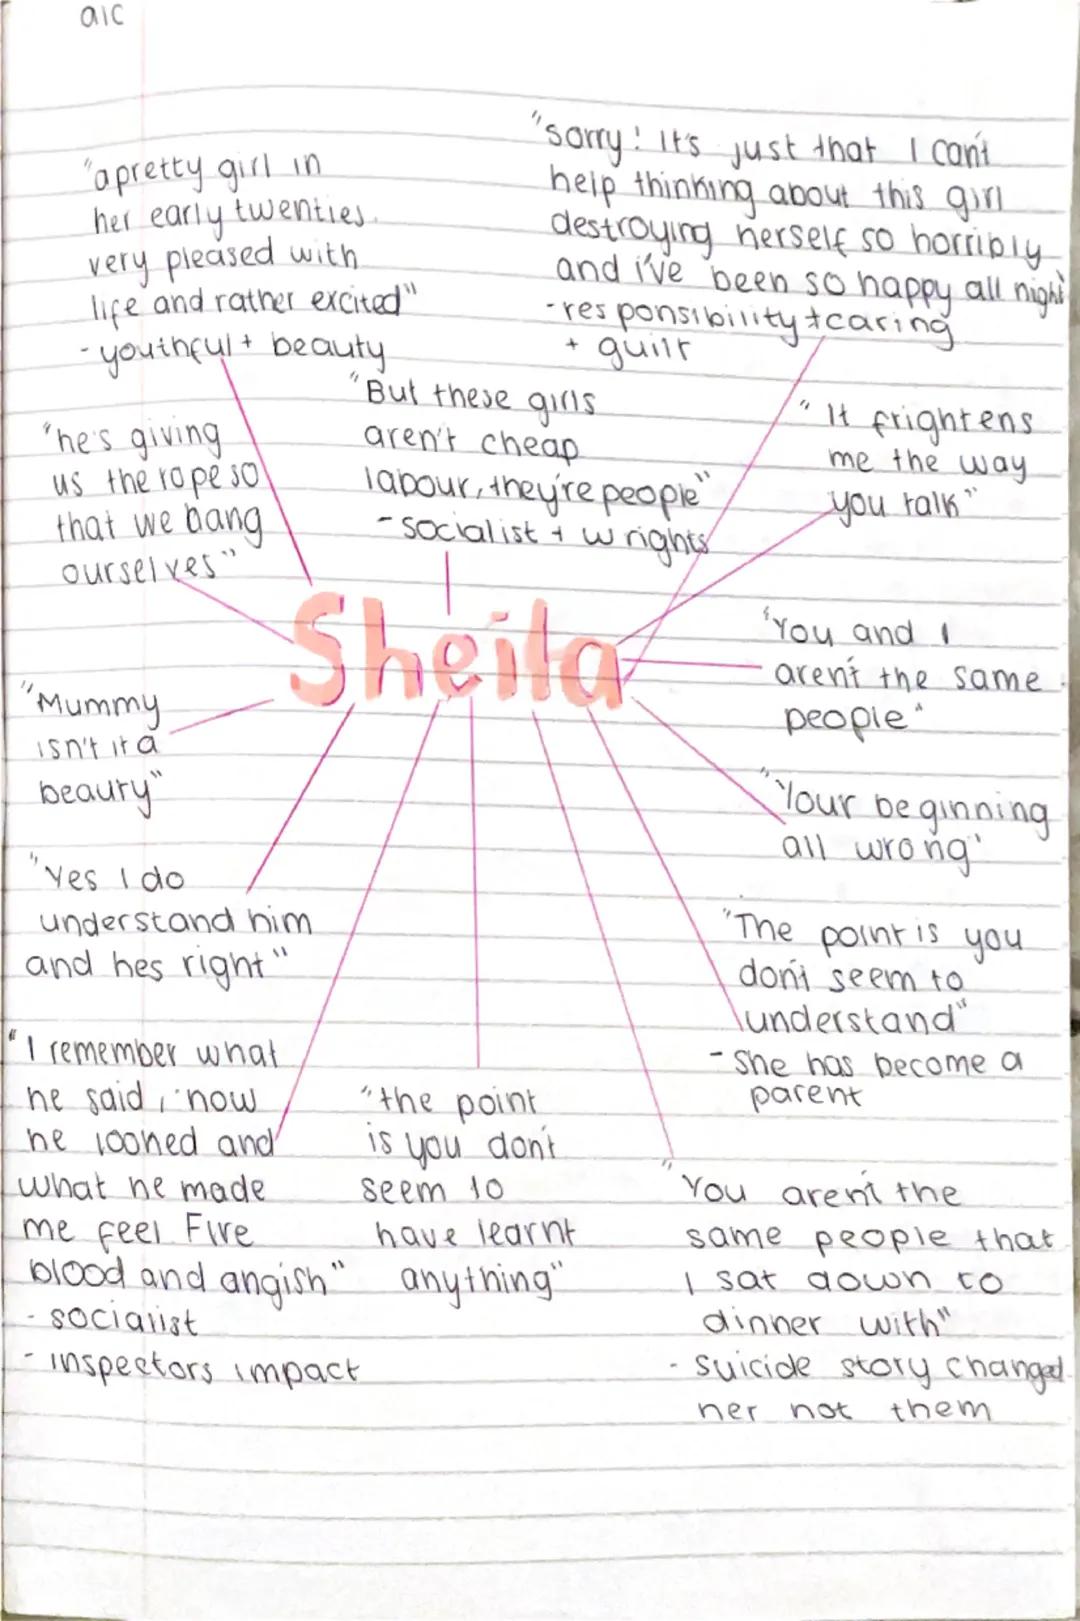 aic
"a pretty girl in
her early twenties.
very pleased with
life and rather excited"
- youthful + beauty
"sorry! It's just that I can't
help thinking about this girl
destroying herself so horribly
and i've been so happy all night
- responsibility + caring
+ guilt
"But these girls
aren't cheap
labour, they're people"
- socialist + w rights
"he's giving
us the rope so
that we hang
ourselves"
"It frightens
me the way
you talk"
Sheila
"You and I
aren't the same
people"
"Mummy
isn't it a
beauty"
"Your beginning
all wrong"
"Yes I do
understand him
and hes right"
"The point is you
don't seem to
understand"
- She has become a
parent
"I remember what
he said, now
he looned and
what he made
me feel Fire
blood and angish"
- socialist
- inspectors impact
"the point
is you don't
seem to
have learnt
anything"
"You aren't the
same people that
I sat down to
dinner with"
- suicide story changed
her not them